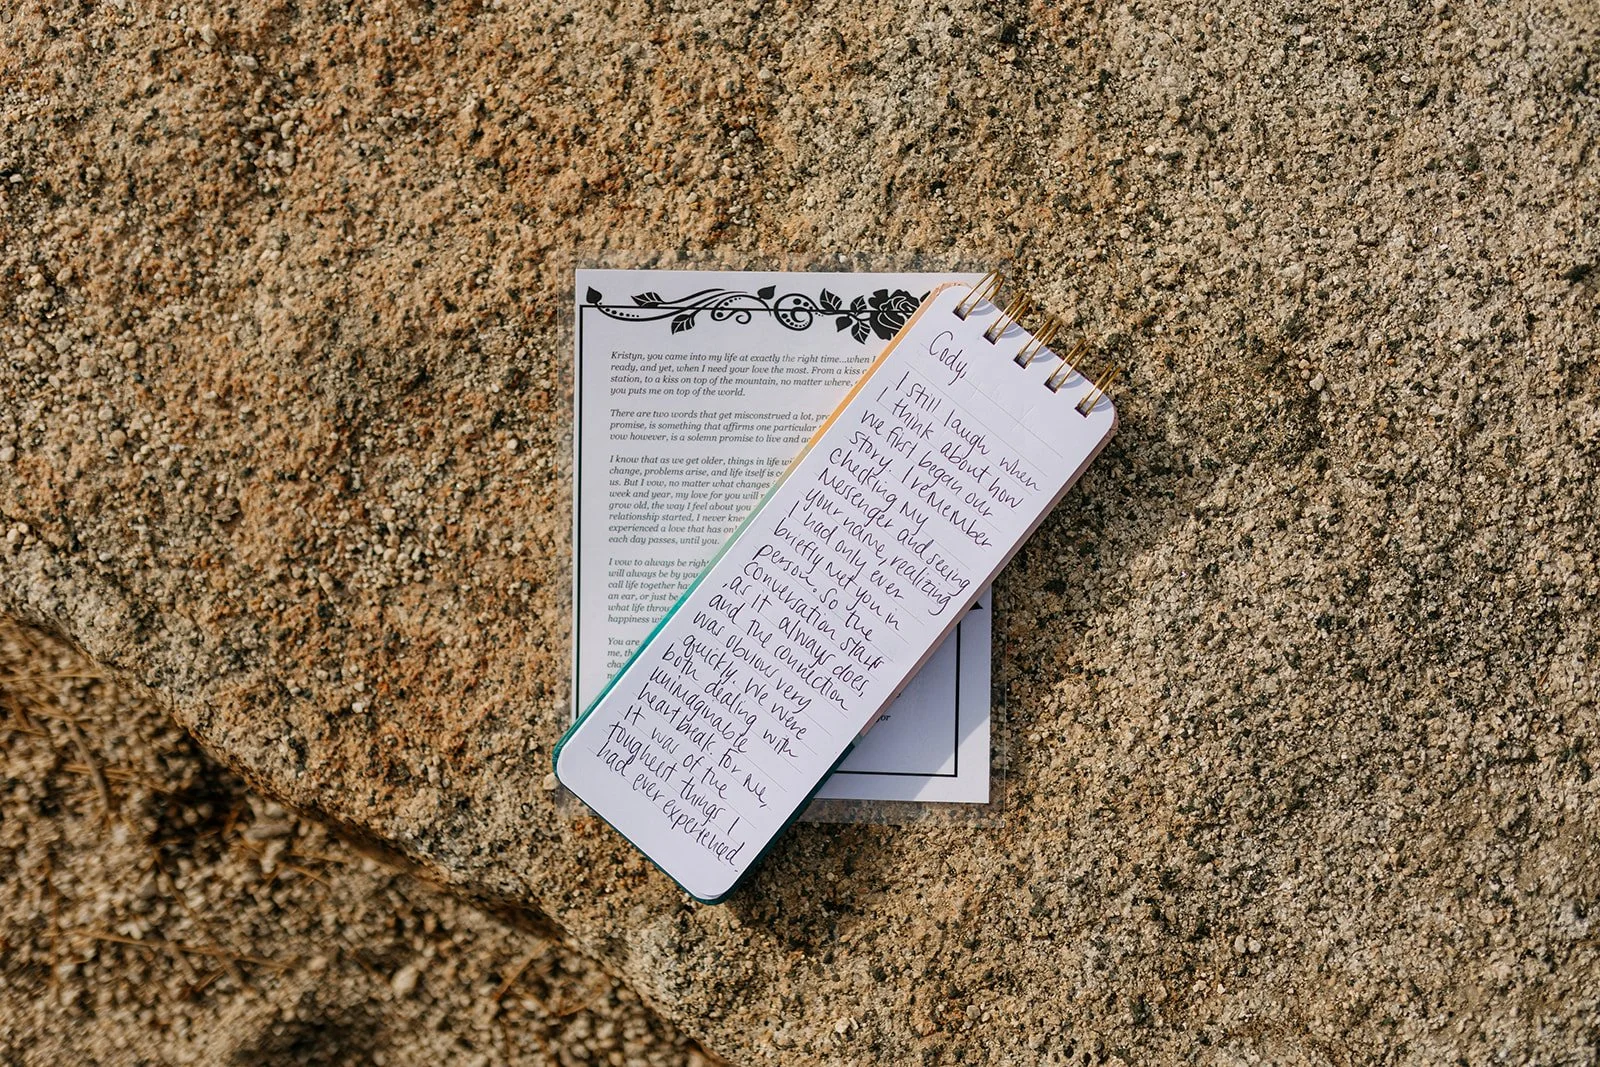 Kristyn, you came into my life at exactly the right time...when I
ready, and yet, when I need your love the most. From a kiss
station, to a kiss on top of the mountain, no matter where,
you puts me on top of the world.
There are two words that get misconstrued a lot,
promise, is something that affirms one particular
vow however, is a solemn promise to live and
I know that as we get older, things in life
change, problems arise, and life itself is
us. But I vow, no matter what changes
week and year, my love for you will
grow old, the way I feel about you
relationship started, I never
experienced a love that has
each day passes, until you.
I vow to always be
will always be by
call life together
an ear, or just be
what life
happiness
You are
me,
or
Cody,
I still laugh when
I think about how
we first began our
story. I remember
checking my
Messenger and seeing
your name, realizing
I had only ever
briefly met you in
person. So the
conversation starts
, as it always does,
and the connection
was obvious very
quickly. We were
both dealing with
unimaginable
heartbreak. For me,
it was of the
toughest things I
had ever experienced.